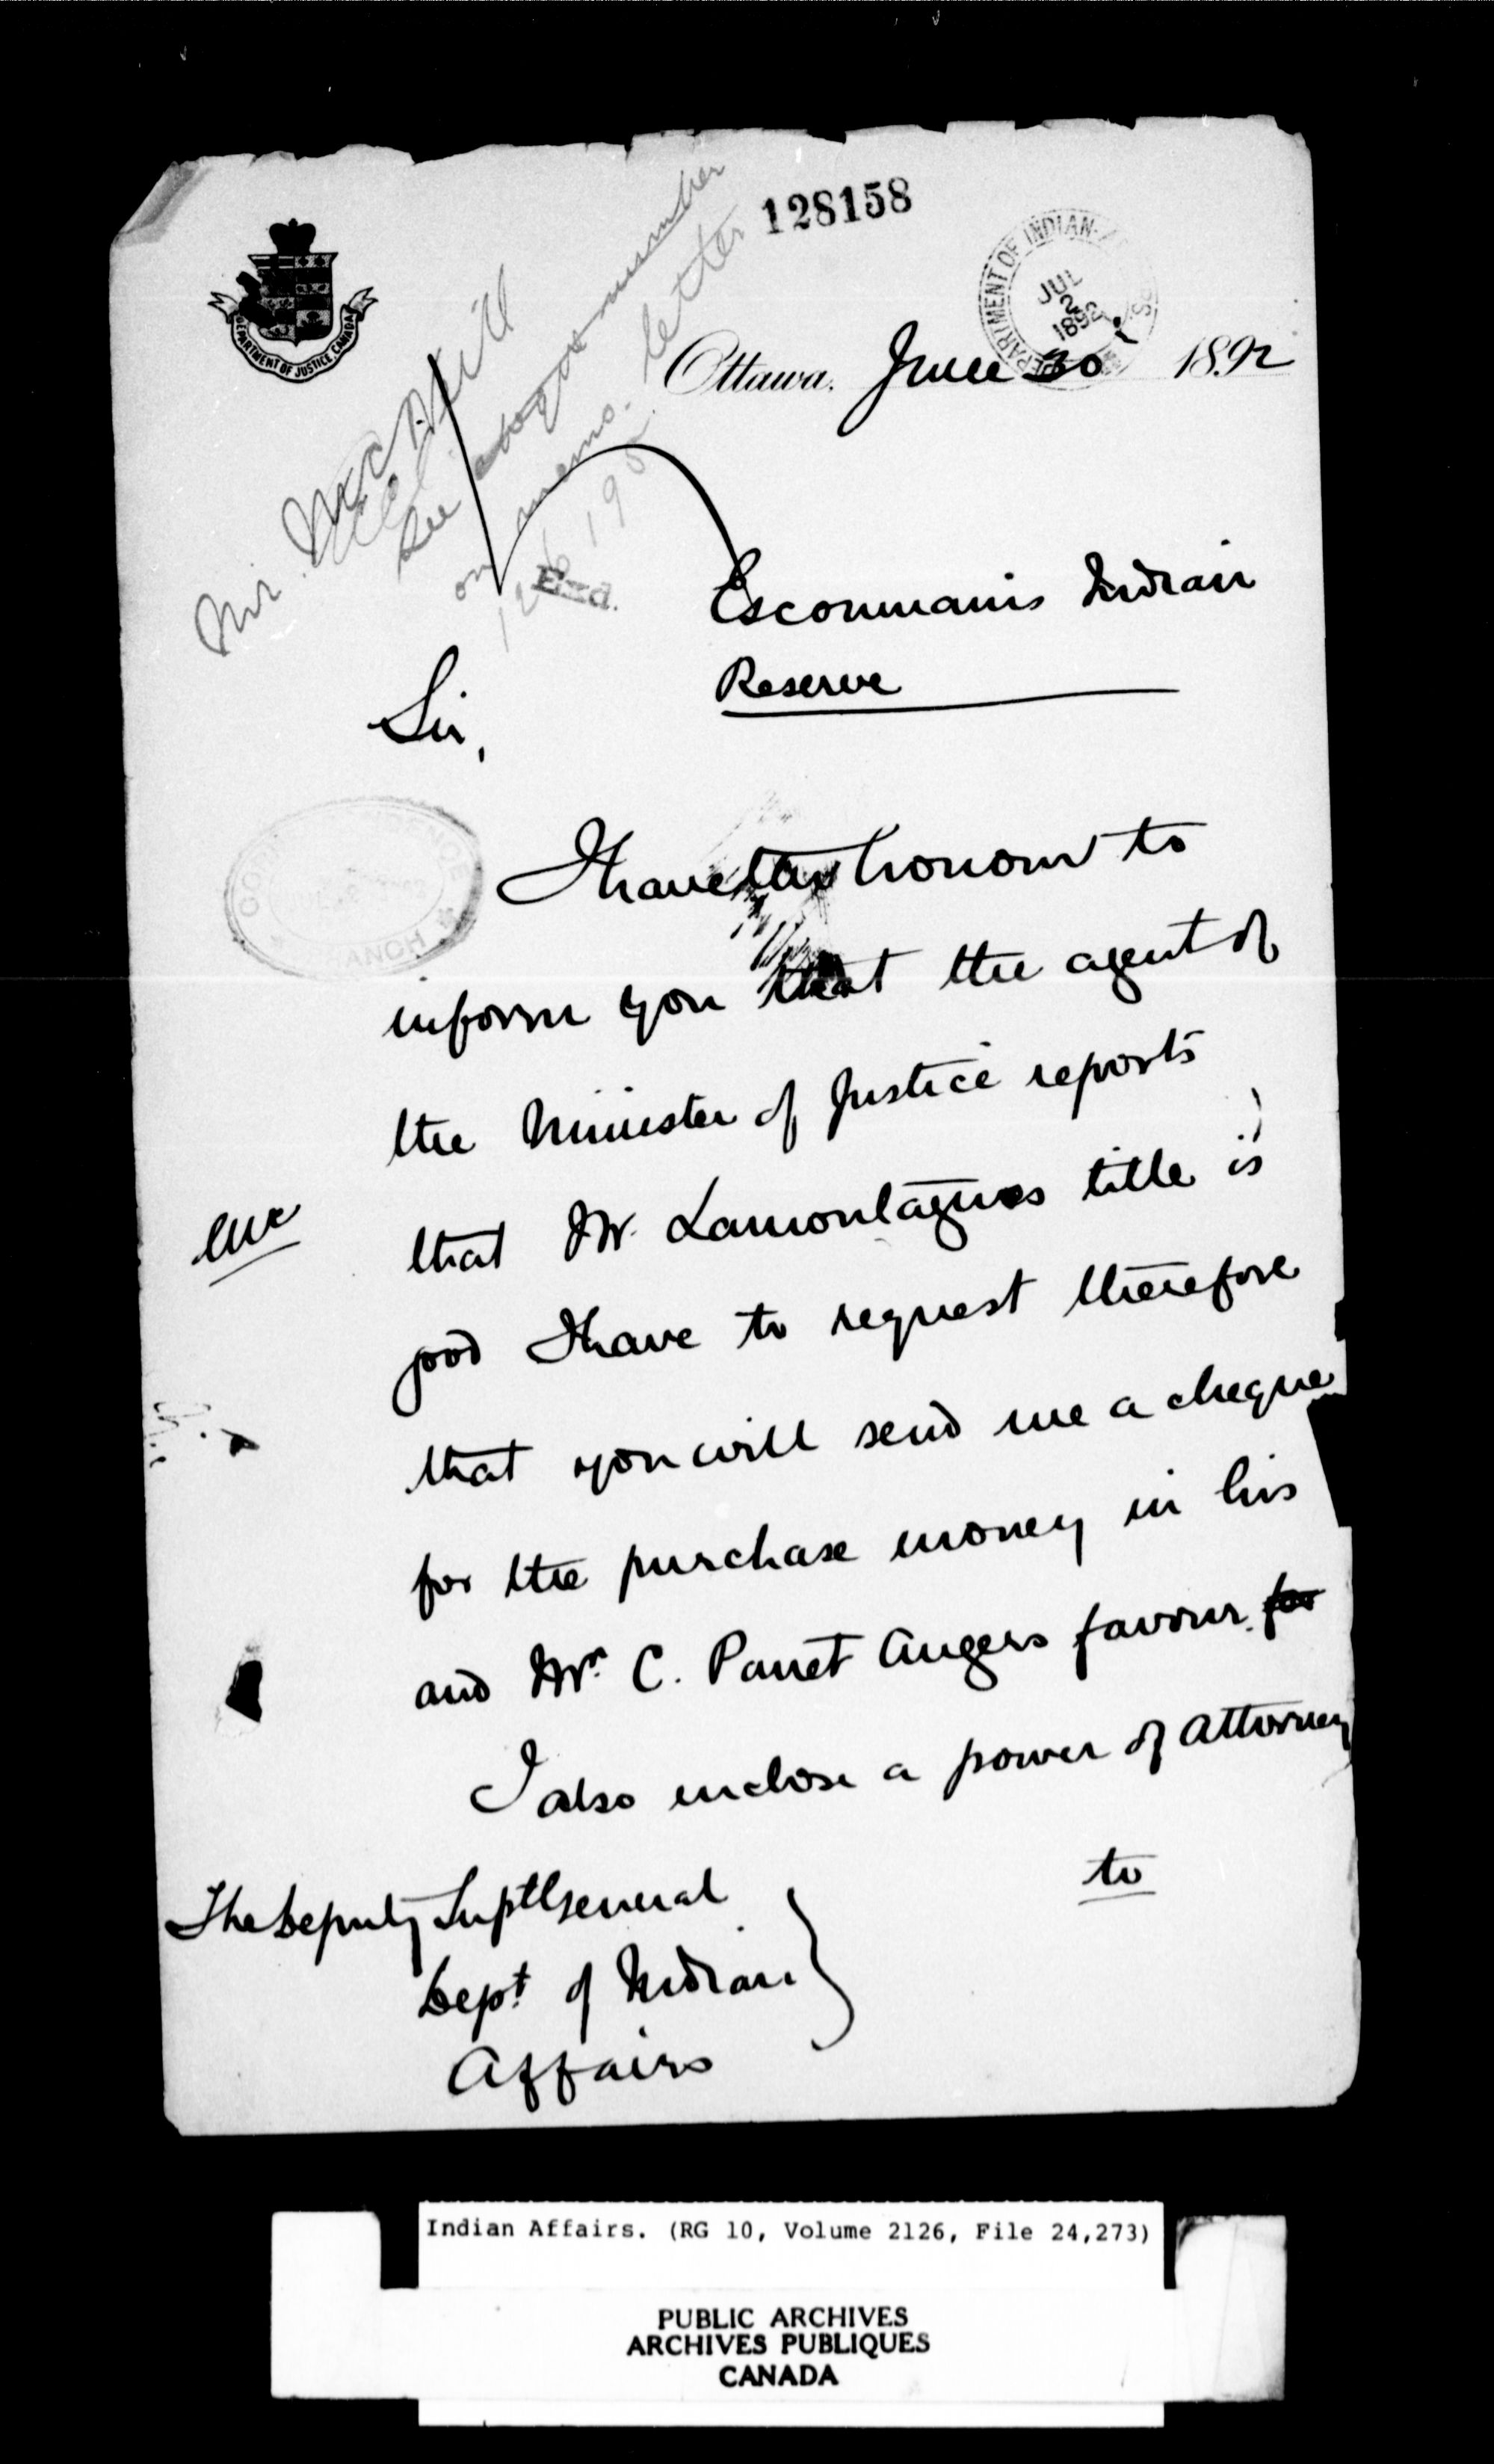 128158
DEPARTMENT OF JUSTICE, CANADA
DEPARTMENT OF INDIAN
JUL
2
1892
Ottawa. June 30 1892
Mr. McNeill
See
number
on memo. letter
Exd.
Escoumains Indian
Reserve
Sir,
I have the honour to
inform you that the agent of
the Minister of Justice reports
that Mr. Lamontagnes title is
good I have to request therefore
that you will send me a cheque
for the purchase money in his
and Mr. C. Panet Angers favour. for
I also inclose a power of attorney
to
The Deputy Supt General
Dept. of Indian
Affairs
Indian Affairs. (RG 10, Volume 2126, File 24,273)
PUBLIC ARCHIVES
ARCHIVES PUBLIQUES
CANADA